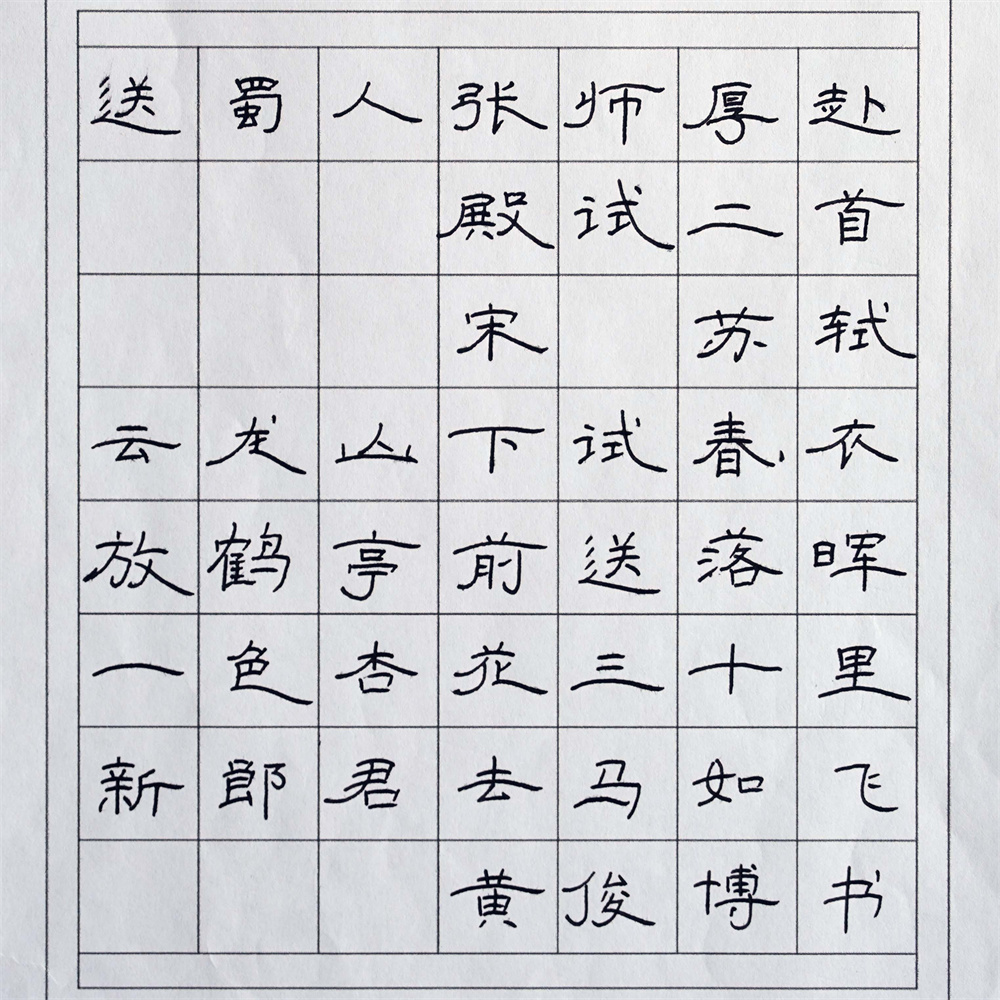 送蜀人张师厚赴
殿试二首
宋 苏轼
云龙山下试春衣
放鹤亭前送落晖
一色杏花三十里
新郎君去马如飞
黄俊博书